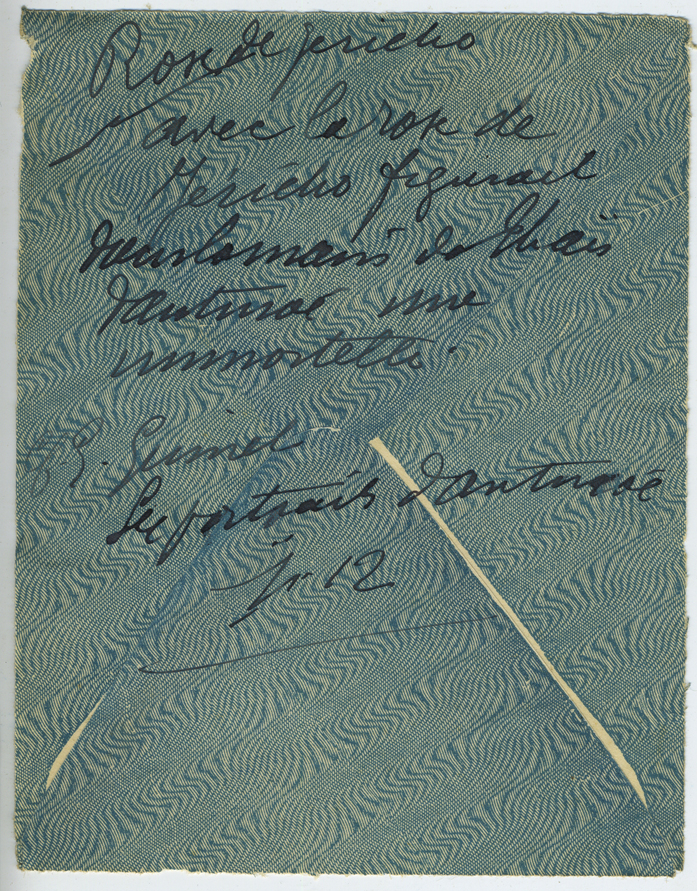 Rose de Jericho
avec la rose de
Jericho figurait
dans les mains de Thaïs
d'Antinoé une
immortelle.
E. Guimet
Les portraits d'Antinoé
p. 12